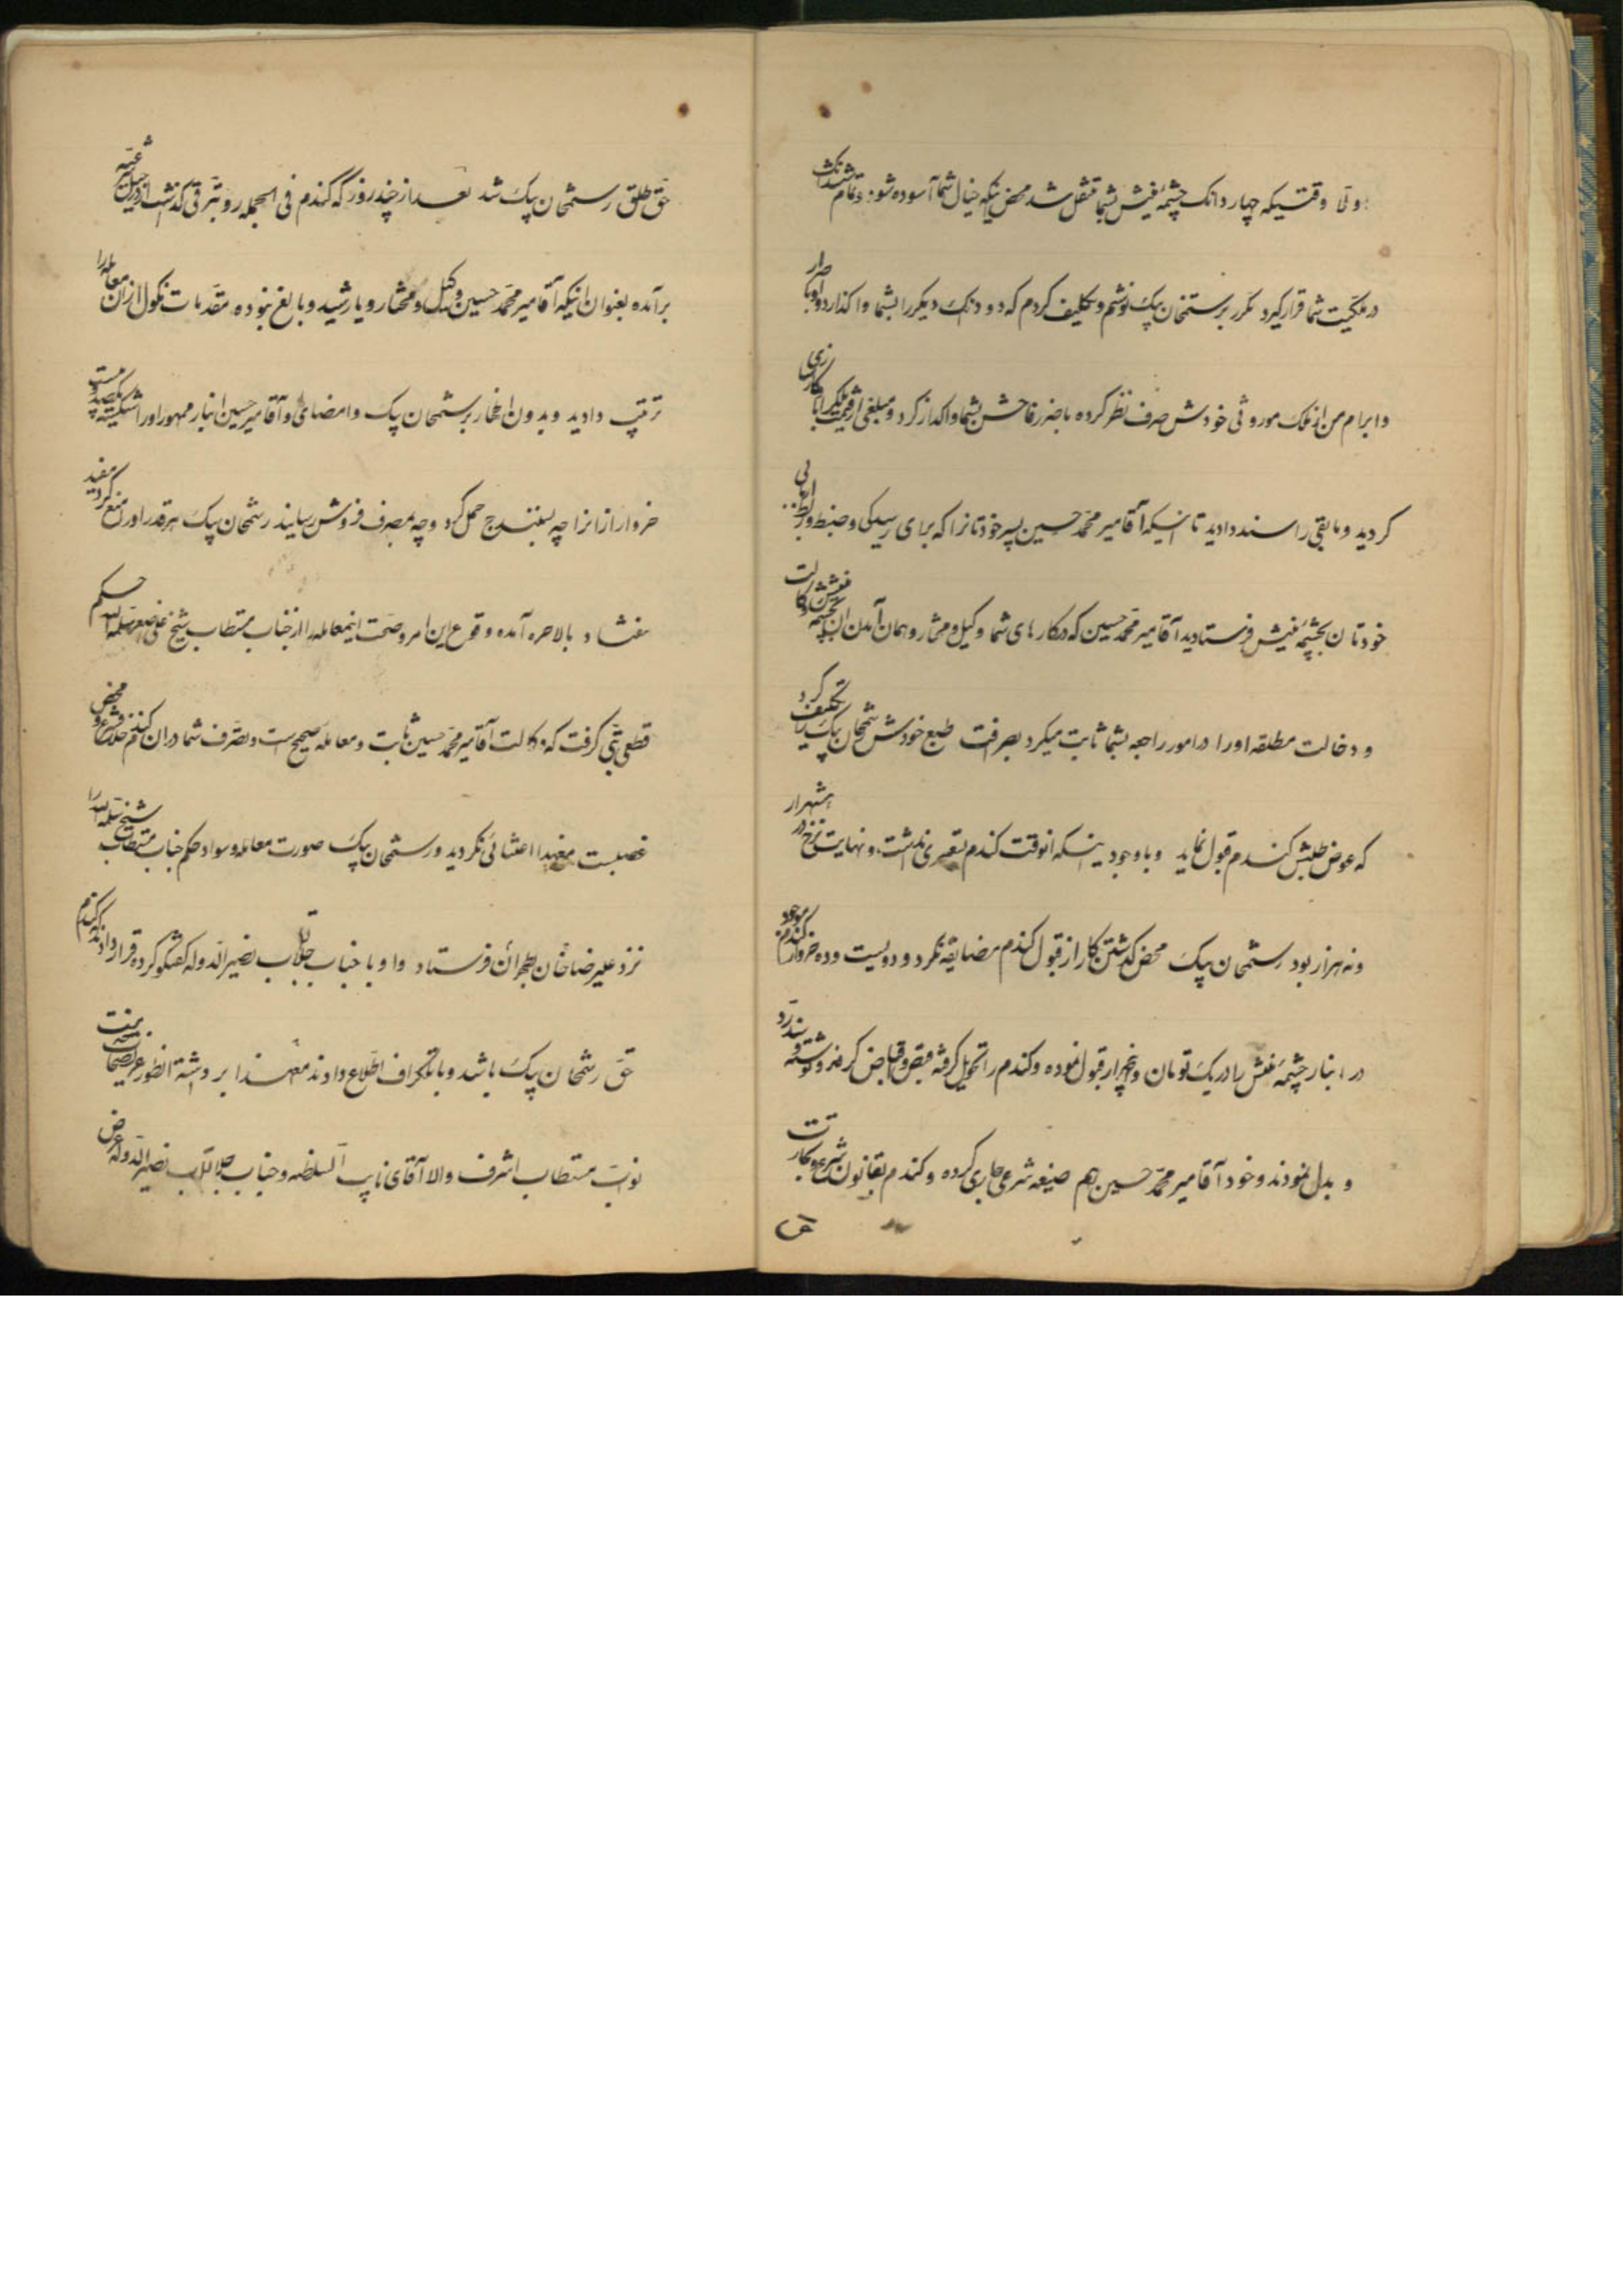 اولا وقتیکه چهار دانک چشمه غیش بشما منتقل شد محض اینکه خیال شما آسوده شود و تمام ششدانک
در ملکیت شما قرار گیرد مکرر برستمخان بیک نوشتم و تکلیف کردم که دو دنک دیگر را بشما واگذارد و او باصرار
و ابرام من از ملک موروثی خودش صرف نظر کرده با ضرر فاحش بشما واکذار کرد و مبلغی از قیمت ملک را کارسازی
کردید و مابقی را سند دادید تا اینکه آقا میر محمد حسین پسر خودتانرا که برای رسیدگی و ضبط و ربط
خودتان بچشمه غیش فرستادید آقا میر محمد حسین که در کارهای شما وکیل و مختار و همان آمدن ان بچشمه غیش وکالت
و دخالت مطلقه اورا در امور راجعه بشما ثابت میکرد بصرافت طبع خودش رستمخان بیک را تکلیف کرد
که عوض طلبش کندم قبول نماید و با وجود اینکه انوقت کندم تسعیری نداشت و نهایت نرخ در هشهزار
و نه هزار بود رستمخان بیک محض کذشتن کار از قبول کندم مضایقه نکرد و دویست و ده خروار کندم موجود
در انبار چشمه غیش را در یک تومان و پنجهزار قبول نموده و کندم را تحویل کرفته قبض و اقباض کرده و نوشته رد
و بدل نمودند و خود آقا میر محمد حسین هم صیغه شرعی جاری کرده و کندم بقانون شرع و تجارت
حق
حق طلق رستمخان بیک شد بعد از چند روز که کندم فی الجمله رو بترقی کذاشت
برآمده بعنوان اینکه آقا میر محمد حسین وکیل و مختار و یا رشید و بالغ نبوده مقدمات نکول از ان معامله را
ترتیب دادید و بدون اخطار برستمخان بیک و امضای او آقا میر حسین انبار ممهور اورا شکسته یکصد و بیست
خروار از انرا چه بسنندج حمل کرد و چه بمصرف فروش رسانید رستمخان بیک هرقدر اورا منع کرد مفید
نیفتاد بالاخره آمده وقوع این امر و صحت اینمعامله را از جناب مستطاب شیخ سلمه الله حکم
قطعی بتی کرفت که وکالت آقا میر محمد حسین ثابت و معامله صحیح است و تصرف شما در ان کندم خلاف شرع و محض
غصبست معهذا اعتنائی نکردید و رستمخان بیک صورت معامله و سواد حکم جناب مستطاب شیخ سلمه الله را
نزد علیرضا خان بطهران فرستاد و او با جناب جلالتماب نصیر الدوله کفتکو کرده قرار دادند که کندم
حق رستمخان بیک باشد و با تلکراف اطلاع دادند معهذا بر
نواب مستطاب اشرف والا آقای نایب السلطنه و جناب جلالتماب نصیر الدوله عرض